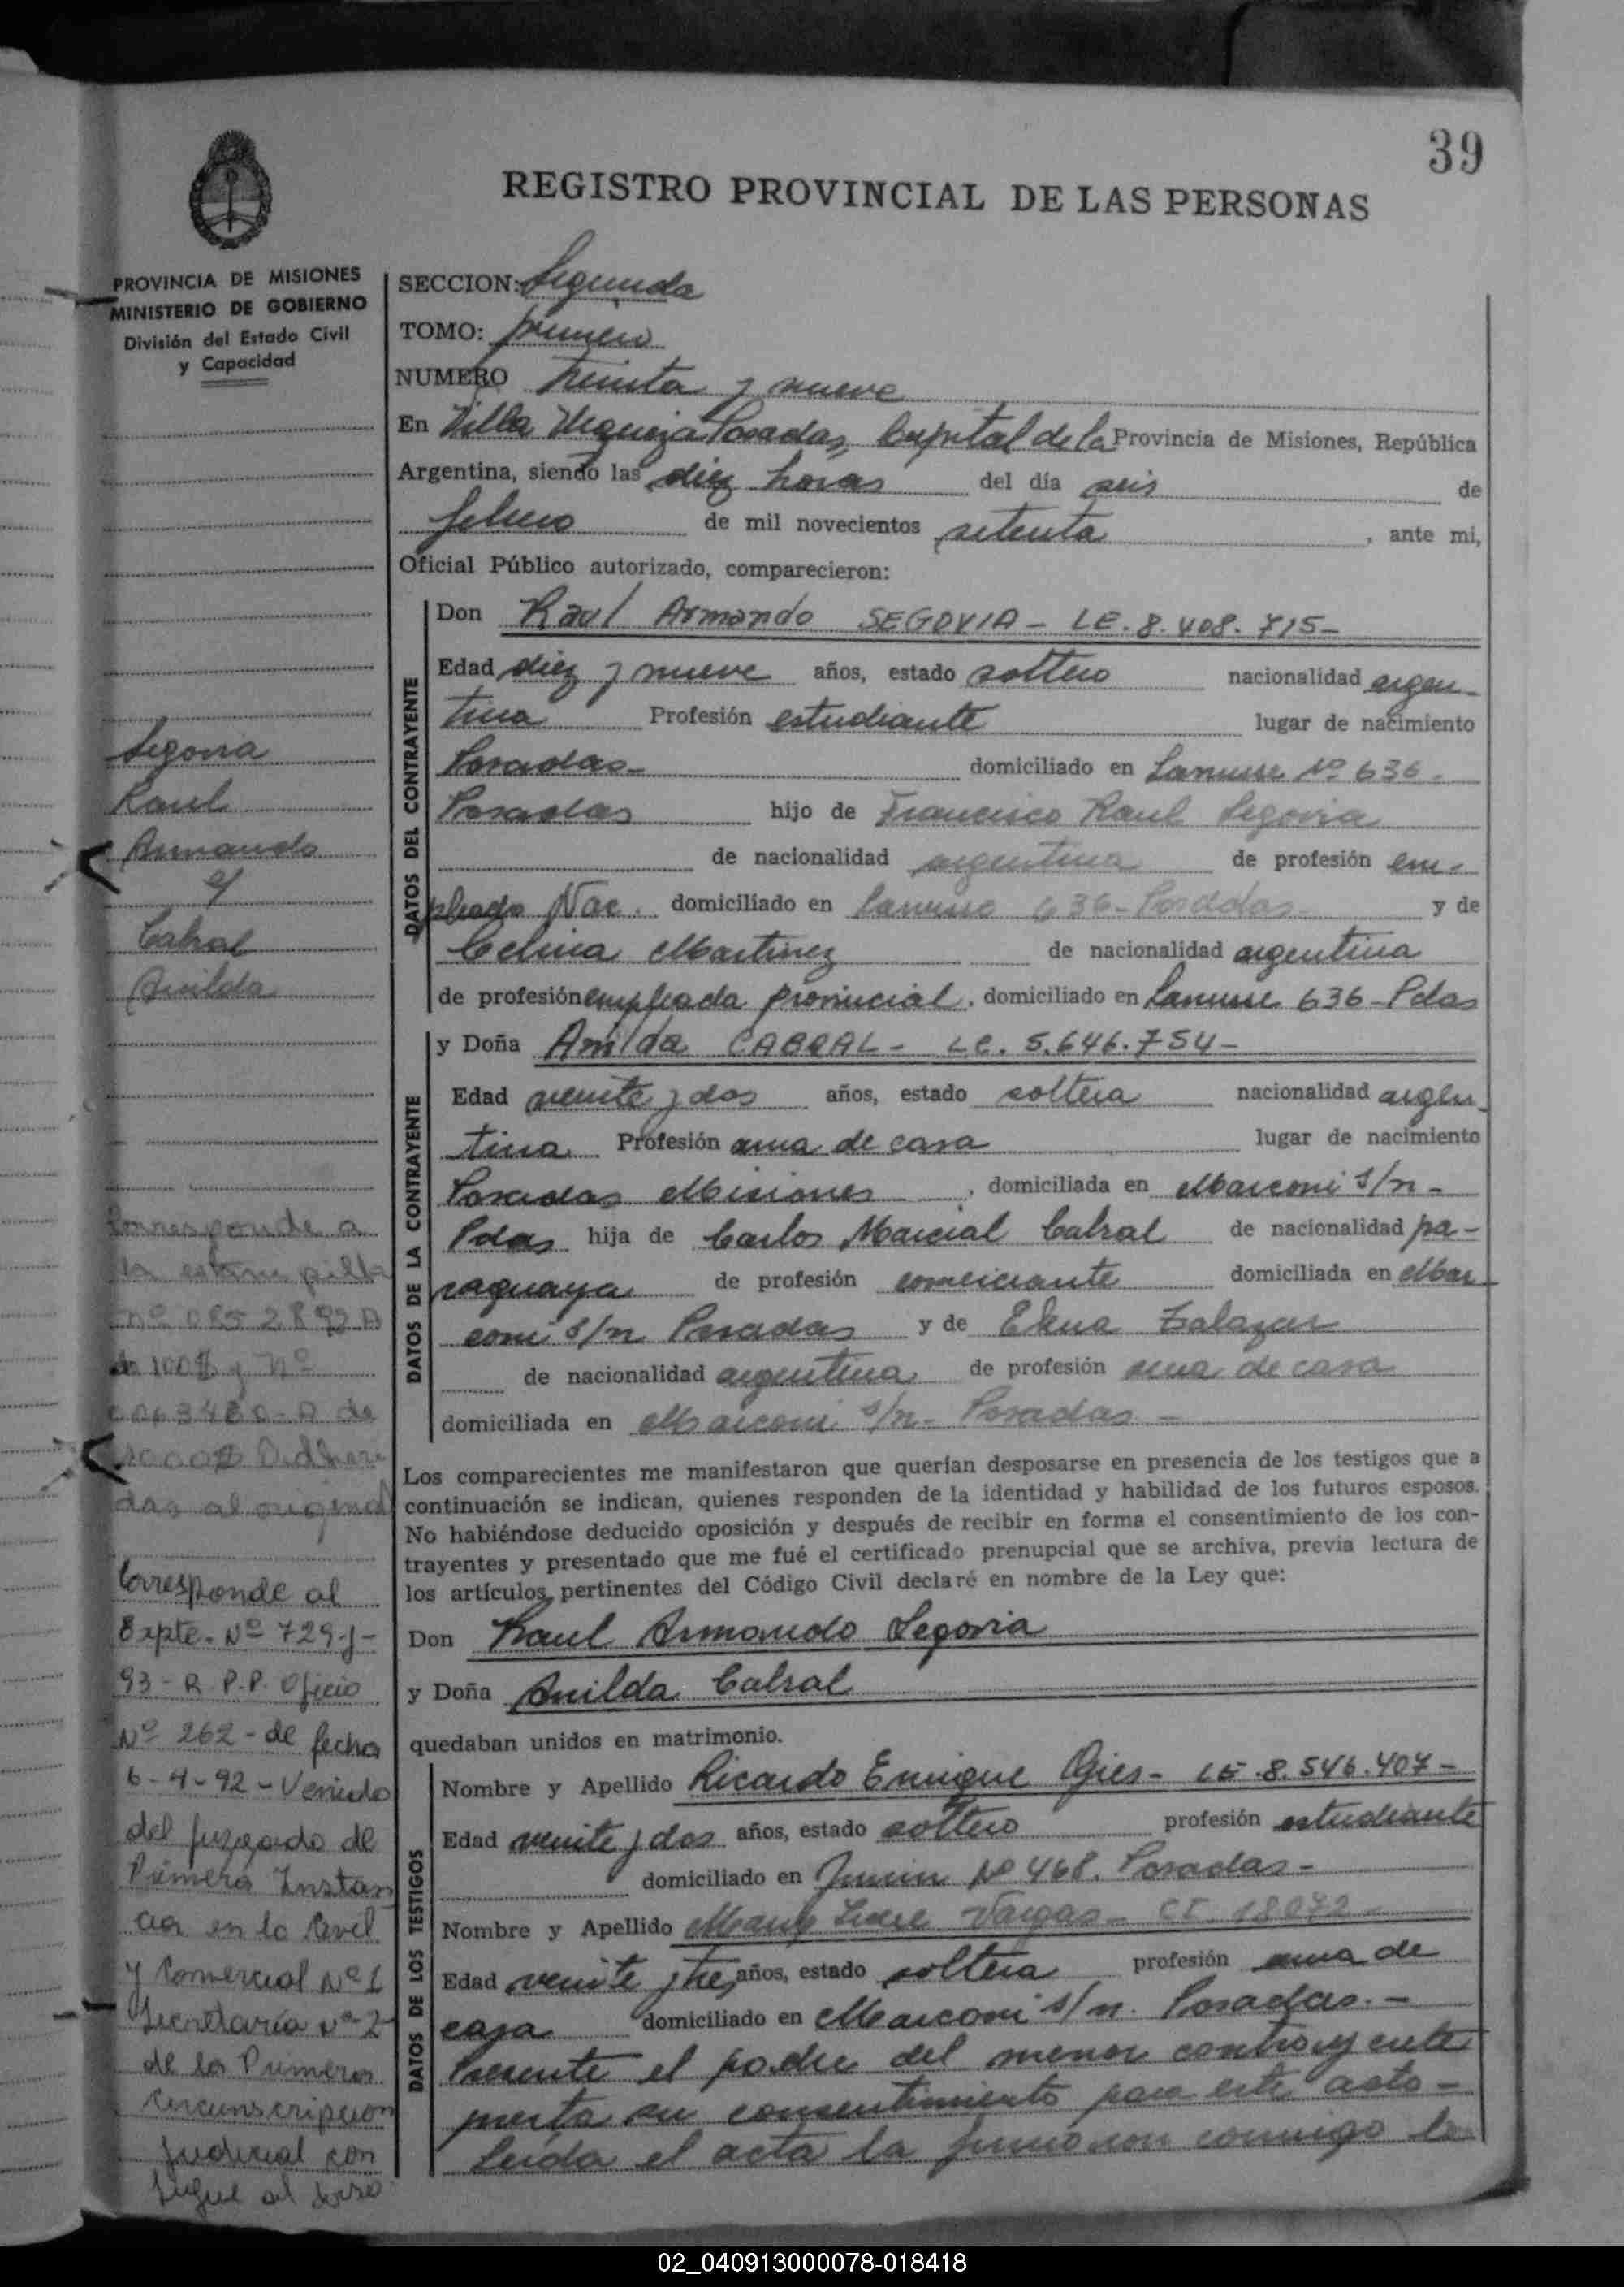 39
REGISTRO PROVINCIAL DE LAS PERSONAS
PROVINCIA DE MISIONES
MINISTERIO DE GOBIERNO
División del Estado Civil
y Capacidad
SECCION: Segunda
TOMO: primero
NUMERO treinta y nueve
En Villa Urquiza Posadas, Capital de la Provincia de Misiones, República
Argentina, siendo las diez horas del día seis de
febrero de mil novecientos setenta, ante mi,
Oficial Público autorizado, comparecieron:
DATOS DEL CONTRAYENTE
Don Raul Armando SEGOVIA - LE. 8.408.715-
Edad diez y nueve años, estado soltero nacionalidad argen-
tina Profesión estudiante lugar de nacimiento
Posadas- domiciliado en Lanusse Nº 636-
Posadas hijo de Francisco Raul Segovia
de nacionalidad argentina de profesión em-
pleado Nac. domiciliado en Lanusse 636- Posadas- y de
Celina Martinez de nacionalidad argentina
de profesión empleada provincial, domiciliado en Lanusse 636- Pdas
DATOS DE LA CONTRAYENTE
y Doña Anilda CABRAL- LC. 5.646.754-
Edad veinte y dos años, estado soltera nacionalidad argen-
tina Profesión ama de casa lugar de nacimiento
Posadas Misiones, domiciliada en Marconi s/n-
Pdas hija de Carlos Marcial Cabral de nacionalidad pa-
raguaya de profesión comerciante domiciliada en Mar-
coni s/n Posadas y de Elena Zalazar
de nacionalidad argentina de profesión ama de casa
domiciliada en Marconi s/n- Posadas-
Los comparecientes me manifestaron que querían desposarse en presencia de los testigos que a
continuación se indican, quienes responden de la identidad y habilidad de los futuros esposos.
No habiéndose deducido oposición y después de recibir en forma el consentimiento de los con-
trayentes y presentado que me fué el certificado prenupcial que se archiva, previa lectura de
los artículos pertinentes del Código Civil declaré en nombre de la Ley que:
Don Raul Armando Segovia
y Doña Anilda Cabral
quedaban unidos en matrimonio.
DATOS DE LOS TESTIGOS
Nombre y Apellido Ricardo Enrique Gies- LE. 8.546.407-
Edad veinte y dos años, estado soltero profesión estudiante
domiciliado en Junin Nº 468. Posadas-
Nombre y Apellido Vargas- CI. 18072-
Edad veinte y tres años, estado soltera profesión ama de
casa domiciliado en Marconi s/n. Posadas.-
Presente el padre del menor contrayente
presta su consentimiento para este acto-
Leída el acta la firmaron conmigo los
Segovia
Raul
Armando
y
Cabral
Anilda
Corresponde a
la estampilla
nº 0852892A
de 100$ y nº
0063480-A de
1000$ Adheri-
das al original
Corresponde al
Expte. Nº 729-J-
93- R.P.P. Oficio
Nº 262- de fecha
6-4-92- Venido
del juzgado de
Primera Instan
cia en lo Civil
y Comercial Nº 1
Secretaría Nº 2
de la Primera
Circunscripcion
Judicial con
Sigue al dorso
02_040913000078-018418